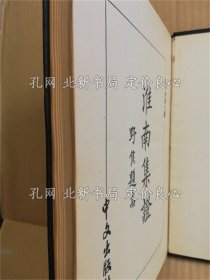 孔网 北新书局 定价良心
淮南集證
野侯題
中文出版
孔网 北新书局 定价良心